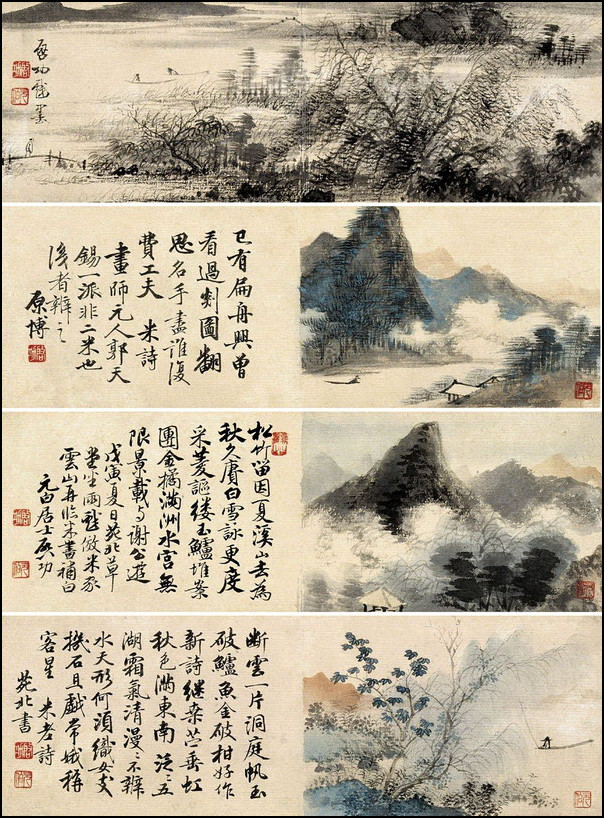 啟功戲墨
已有扁舟興曾
看過剡圖翻
思名手盡誰復
費工夫 米詩
畫師元人郭天
錫一派非二米也
後者辨之
原博
松竹留因夏溪山去為
秋久賡白雪詠更度
采菱謳縷玉鱸堆案
團金橘滿洲水宮無
限景載与謝公遊
戊寅夏日苑北草
堂坐雨戲倣米家
雲山再臨米書補白
元白居士啟功
斷雲一片洞庭帆玉
破鱸魚金破柑好作
新詩繼桑苧垂虹
秋色滿東南 泛〻五
湖霜氣清漫〻不辨
水天形何須織女支
機石且戲常娥稱
客星 米老詩
苑北書